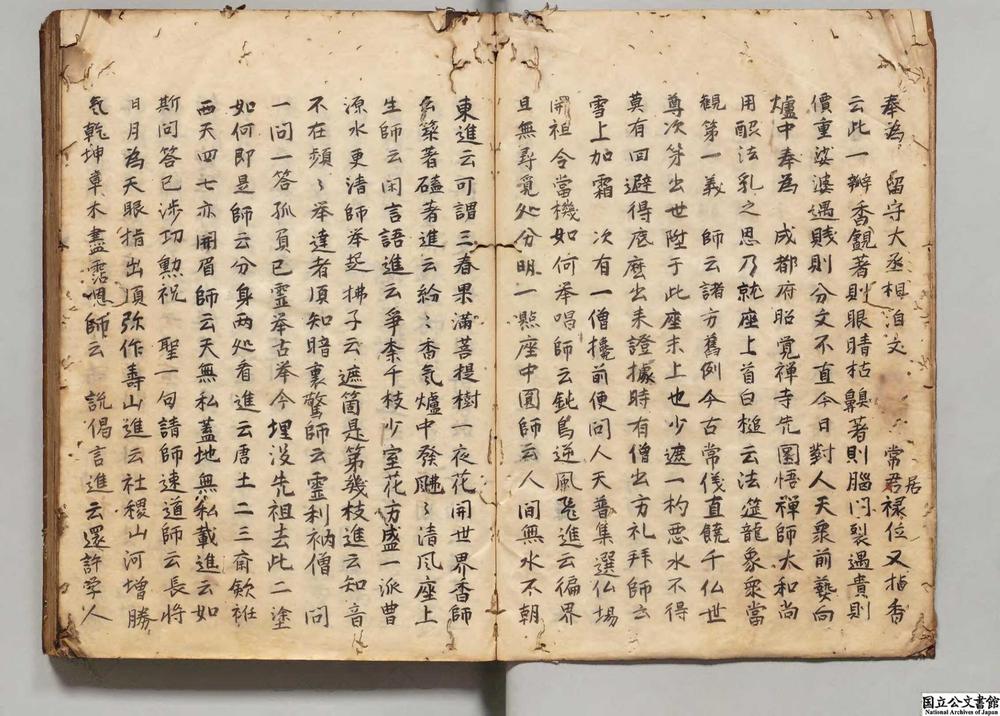 奉為 留守大丞相洎文 常居禄位又拈香
云此一瓣香覷著則眼睛枯齅著則腦門裂遇貴則
價重娑婆遇賎則分文不直今日對人天衆前爇向
爐中奉為 成都府昭覺禅寺先圜悟禪師大和尚
用酬法乳之恩乃就座上首白槌云法筵龍象衆當
観第一義 師云諸方舊例今古常儀直饒千仏世
尊次第出世陞于此座未上也少遮一杓悪水不得
莫有回避得底麽出来證據時有僧出方礼拜師云
雪上加霜 次有一僧攙前便問人天普集選仏場
開祖令當機如何举唱師云鈍鳥逆風飛進云徧界
且無尋覓処分明一㸃座中圓師云人間無水不朝
東進云可謂三春果滿菩提樹一夜花開世界香師
云築著磕著進云紛〻香氣爐中發颺〻清風座上
生師云閑言語進云爭柰千枝少室花方盛一派曹
源水更清師举起拂子云遮箇是第幾枝進云知音
不在頻〻举達者須知暗裏驚師云霊利衲僧 問
一問一答孤負已霊举古举今埋没先祖去此二塗
如何即是師云分身両処看進云唐土二三齊歛袵
西天四七亦開眉師云天無私蓋地無私載進云如
斯問答已涉功勲祝 聖一句請師速道師云長将
日月為天眼指出須弥作壽山進云社稷山河增勝
氣乾坤草木盡霑恩師云 說偈言進云還許学人